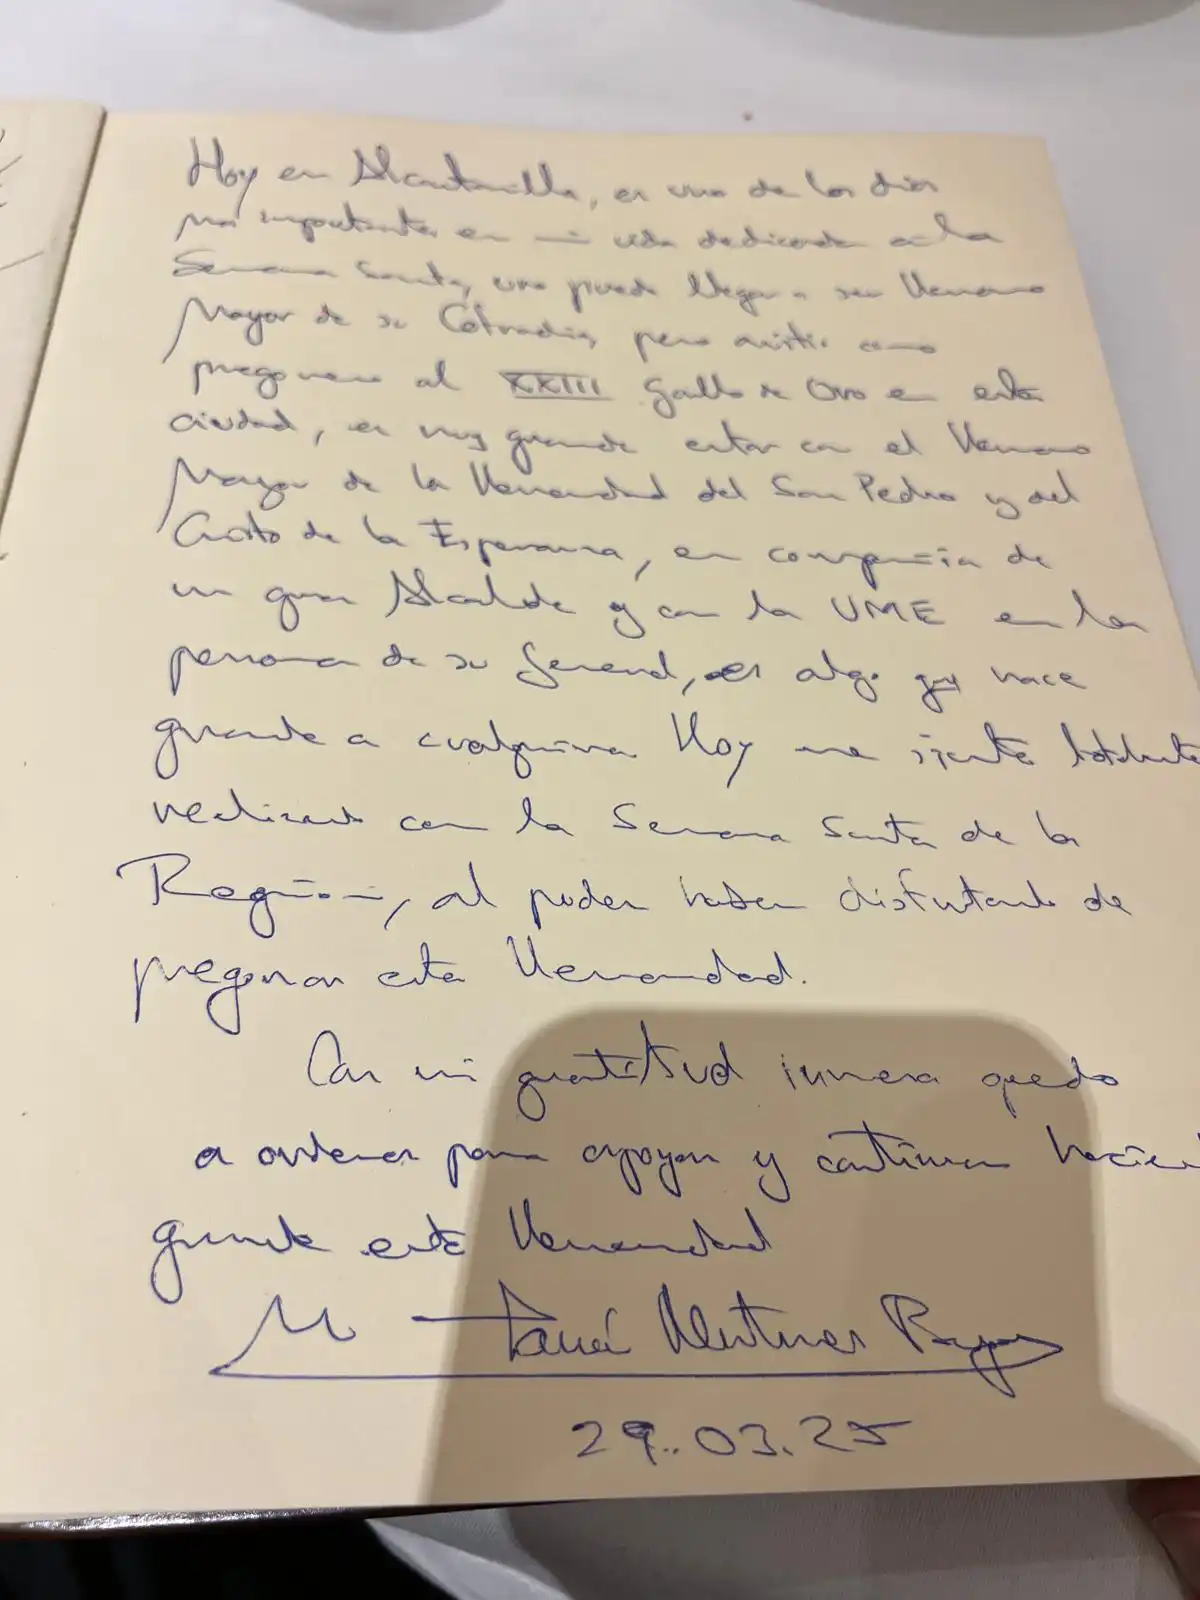 Hoy en Alcantarilla, es uno de los días
mas importantes en mi vida dedicada a la
Semana Santa, uno puede llegar a ser Hermano
Mayor de su Cofradía, pero asistir como
pregonero al XXIII Gallo de Oro en esta
ciudad, es muy grande estar con el Hermano
Mayor de la Hermandad del San Pedro y del
Cristo de la Esperanza, en compañia de
un gran Alcalde y con la UME en la
persona de su General, es algo que hace
grande a cualquiera Hoy me siento totalmente
realizado con la Semana Santa de la
Región, al poder haber disfrutado de
pregonar esta Hermandad.
Con mi gratitud inmensa quedo
a ordenes para apoyar y continuar
grande esta Hermandad
29.03.25